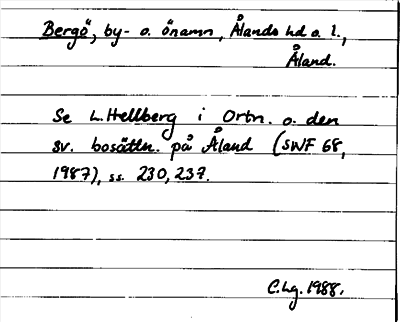 Bergö, by- o. önamn, Ålands hd o. l.,
Åland.
Se L. Hellberg i Ortn. o. den
sv. bosättn. på Åland (SNF 68,
1987), ss. 230, 237.
C. Lg. 1988.